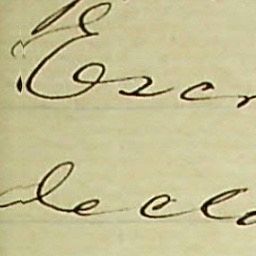 Escr
decla